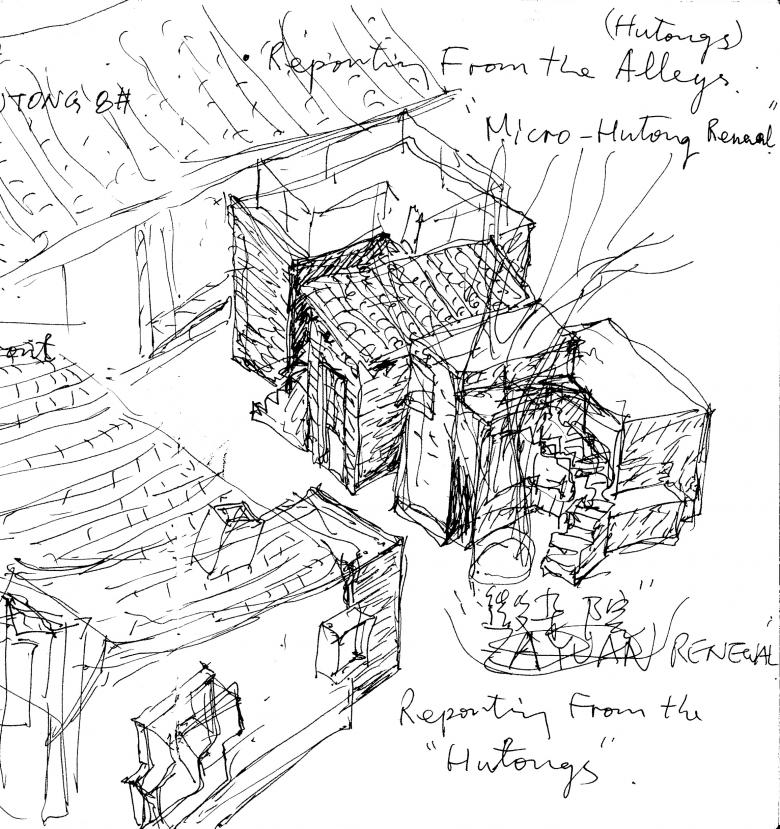 (Hutongs)
• Reporting From the Alleys.
UTONG 8#
"Micro-Hutong Renewal"
ont
ZA YUAN RENEWAL
Reporting From the
"Hutongs".